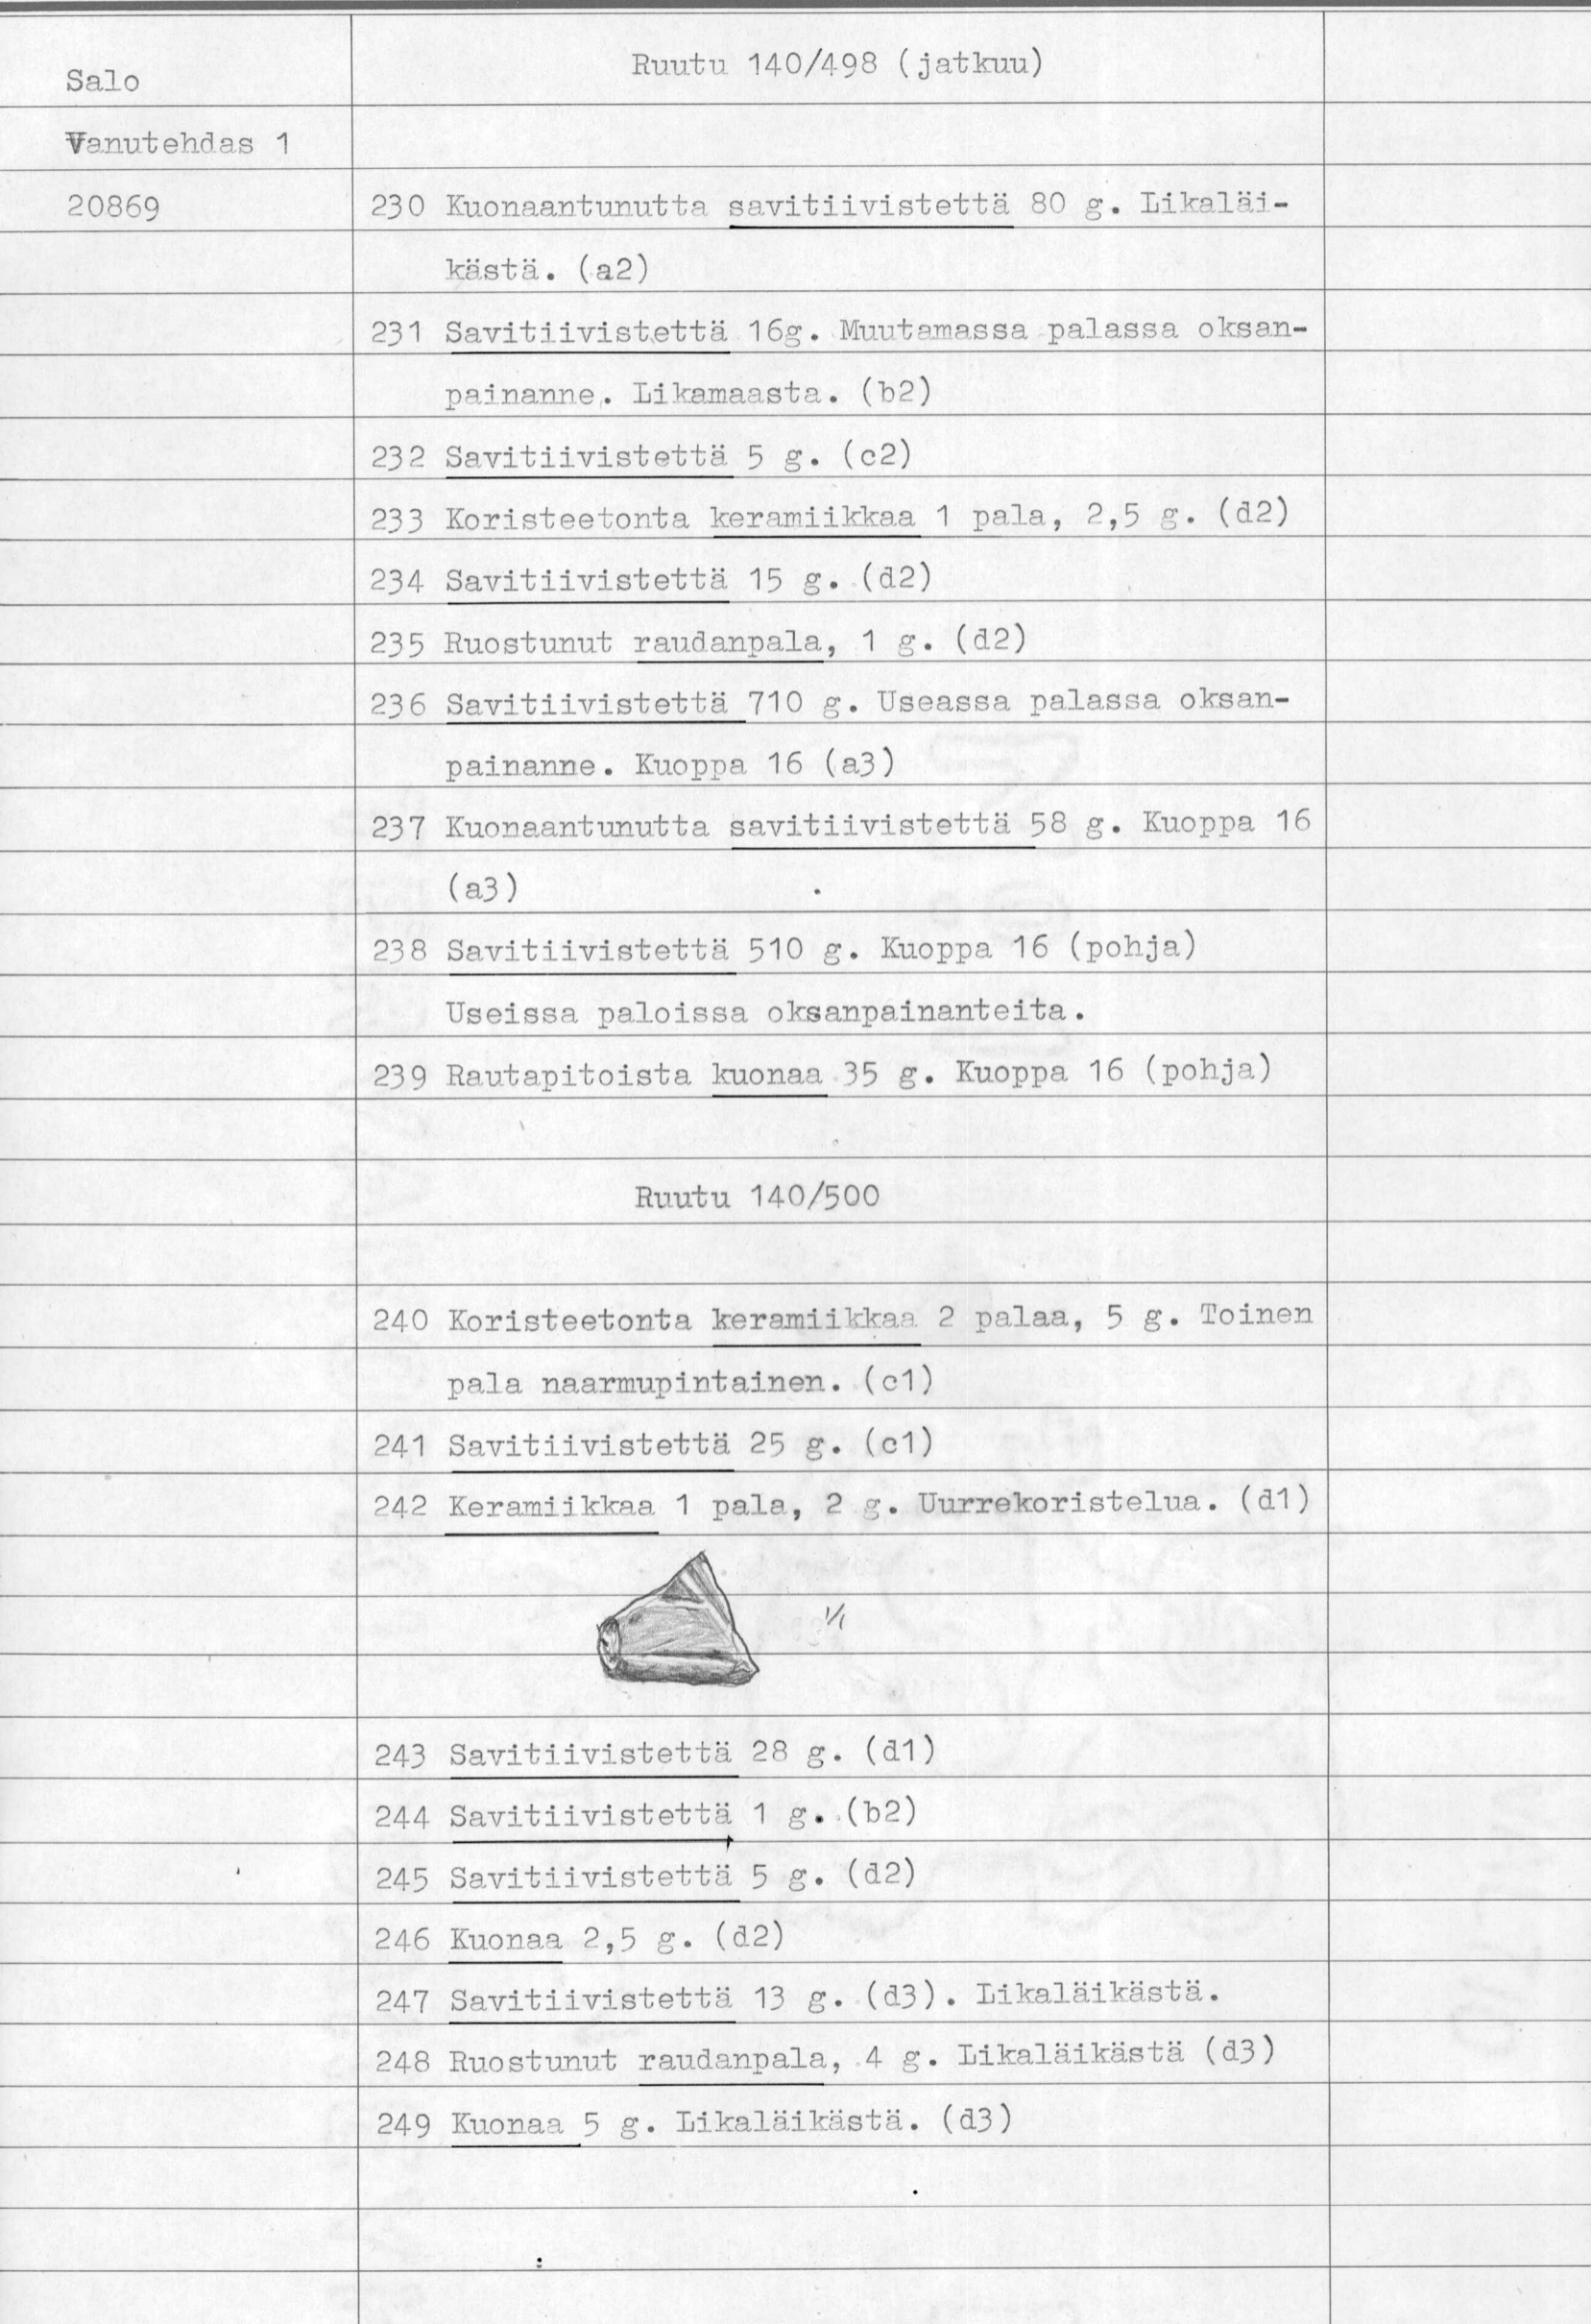 Salo
Ruutu 140/498 (jatkuu)
Vanutehdas 1
20869
230 Kuonaantunutta savitiivistettä 80 g. Likaläi-
kästä. (a2)
231 Savitiivistettä 16g. Muutamassa palassa oksan-
painanne. Likamaasta. (b2)
232 Savitiivistettä 5 g. (c2)
233 Koristeetonta keramiikkaa 1 pala, 2,5 g. (d2)
234 Savitiivistettä 15 g. (d2)
235 Ruostunut raudanpala, 1 g. (d2)
236 Savitiivistettä 710 g. Useassa palassa oksan-
painanne. Kuoppa 16 (a3)
237 Kuonaantunutta savitiivistettä 58 g. Kuoppa 16
(a3)
238 Savitiivistettä 510 g. Kuoppa 16 (pohja)
Useissa paloissa oksanpainanteita.
239 Rautapitoista kuonaa 35 g. Kuoppa 16 (pohja)
Ruutu 140/500
240 Koristeetonta keramiikkaa 2 palaa, 5 g. Toinen
pala naarmupintainen. (c1)
241 Savitiivistettä 25 g. (c1)
242 Keramiikkaa 1 pala, 2 g. Uurrekoristelua. (d1)
1/1
243 Savitiivistettä 28 g. (d1)
244 Savitiivistettä 1 g. (b2)
245 Savitiivistettä 5 g. (d2)
246 Kuonaa 2,5 g. (d2)
247 Savitiivistettä 13 g. (d3). Likaläikästä.
248 Ruostunut raudanpala, 4 g. Likaläikästä (d3)
249 Kuonaa 5 g. Likaläikästä. (d3)